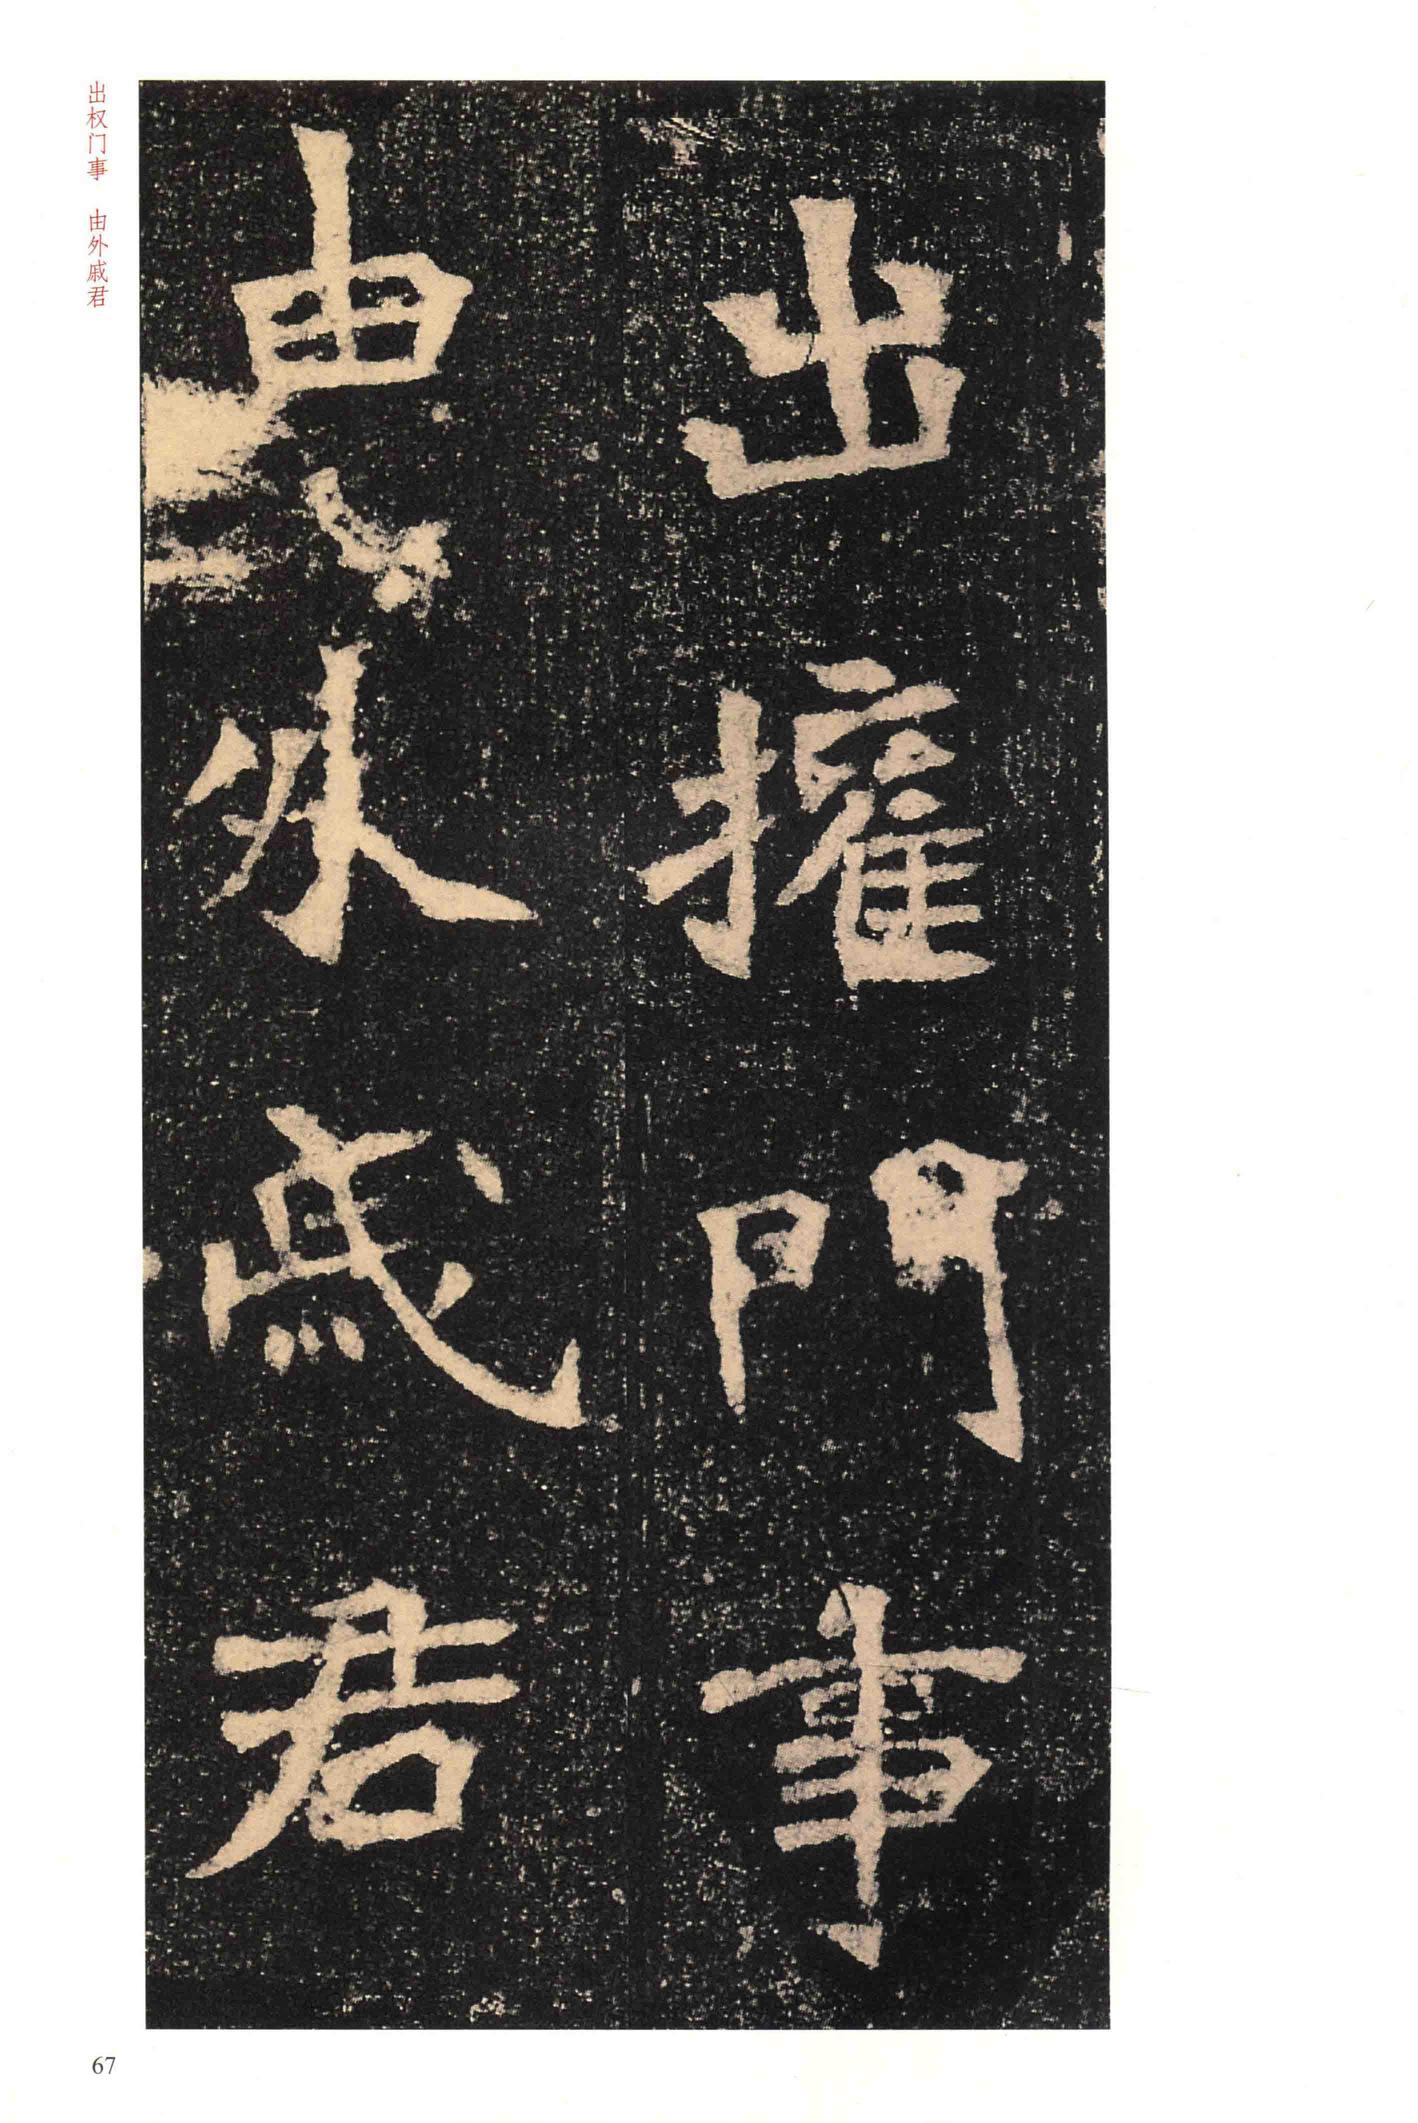 出權門事
由外戚君
出权门事 由外戚君
67